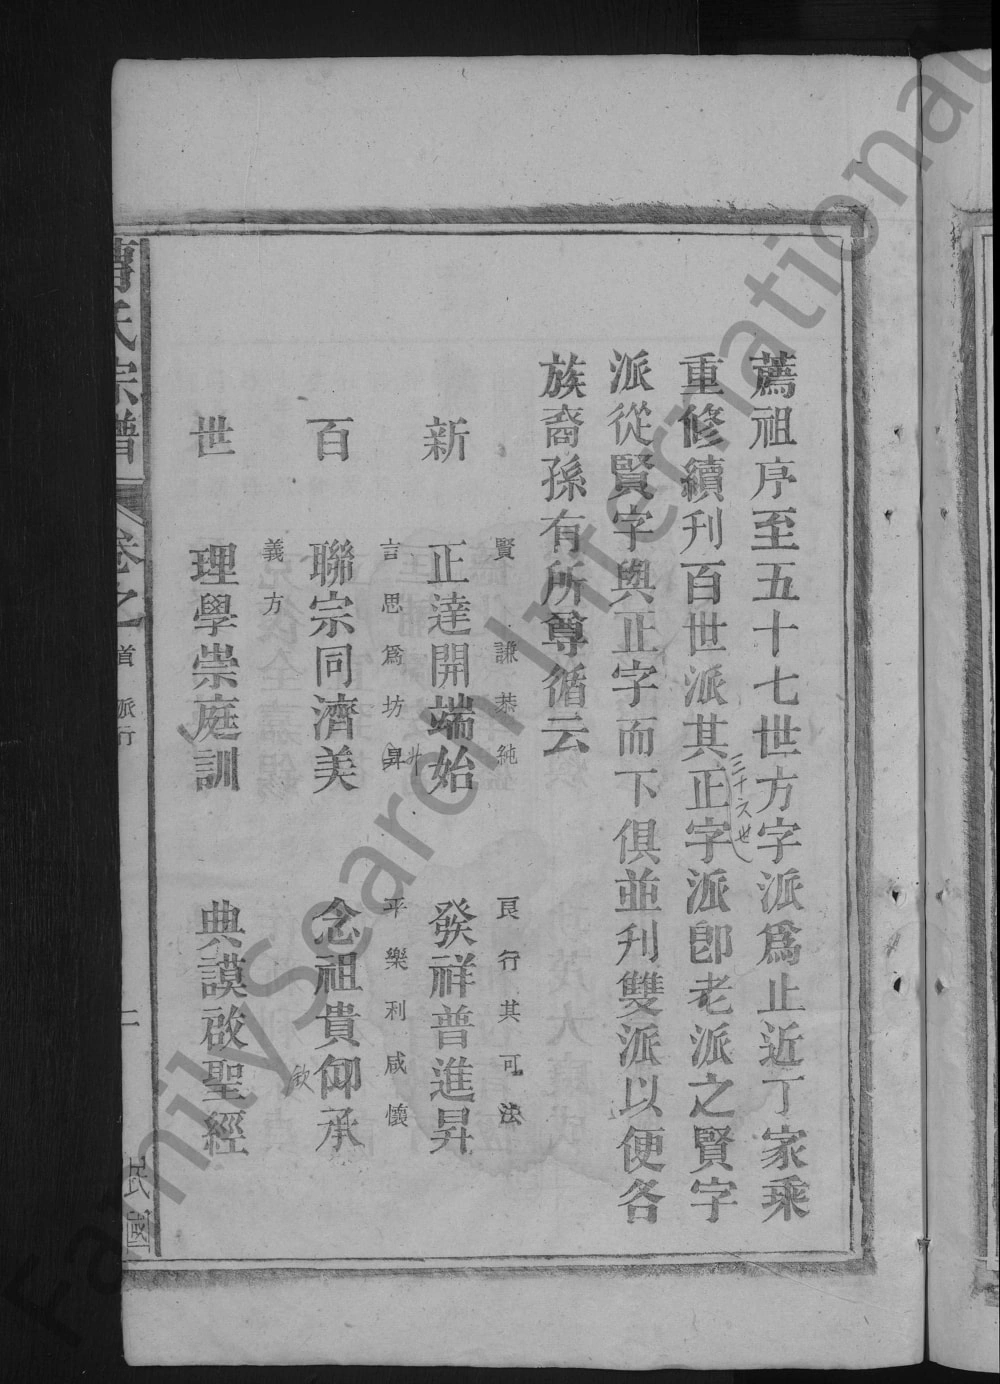 薦祖序至五十七世方字派爲止近丁家乘
重修續刋百世派其正字派卽老派之賢字
三十六世
派從賢字與正字而下俱並刋雙派以便各
族裔孫有所尊循云
賢 謙恭純 良行其可法
新 正達開端始 發祥普進昇
言思爲坊昇 平樂利咸懷
升
百 聯宗同濟美 念祖貴仰承
欽
義方
世 理學崇庭訓 典謨啟聖經
氏宗譜 卷之首 派行 二 民國
FamilySearch International